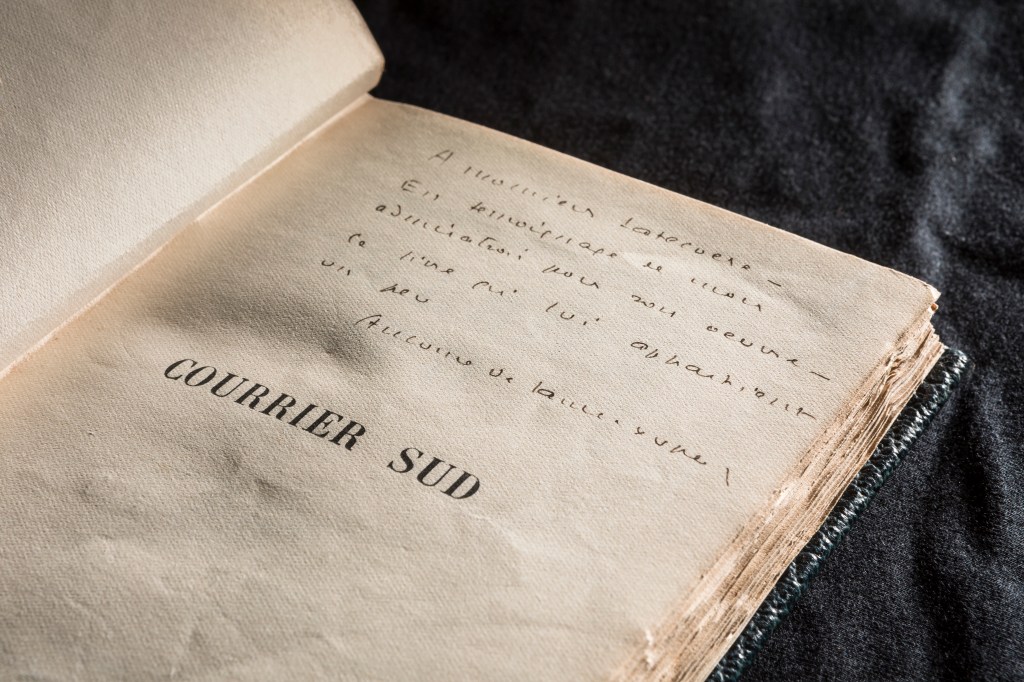 A monsieur Latecoere –
En temoignage de mon
admiration pour son oeuvre –
ce livre qui lui appartient
un peu
Antoine de Saint Exupery
COURRIER SUD